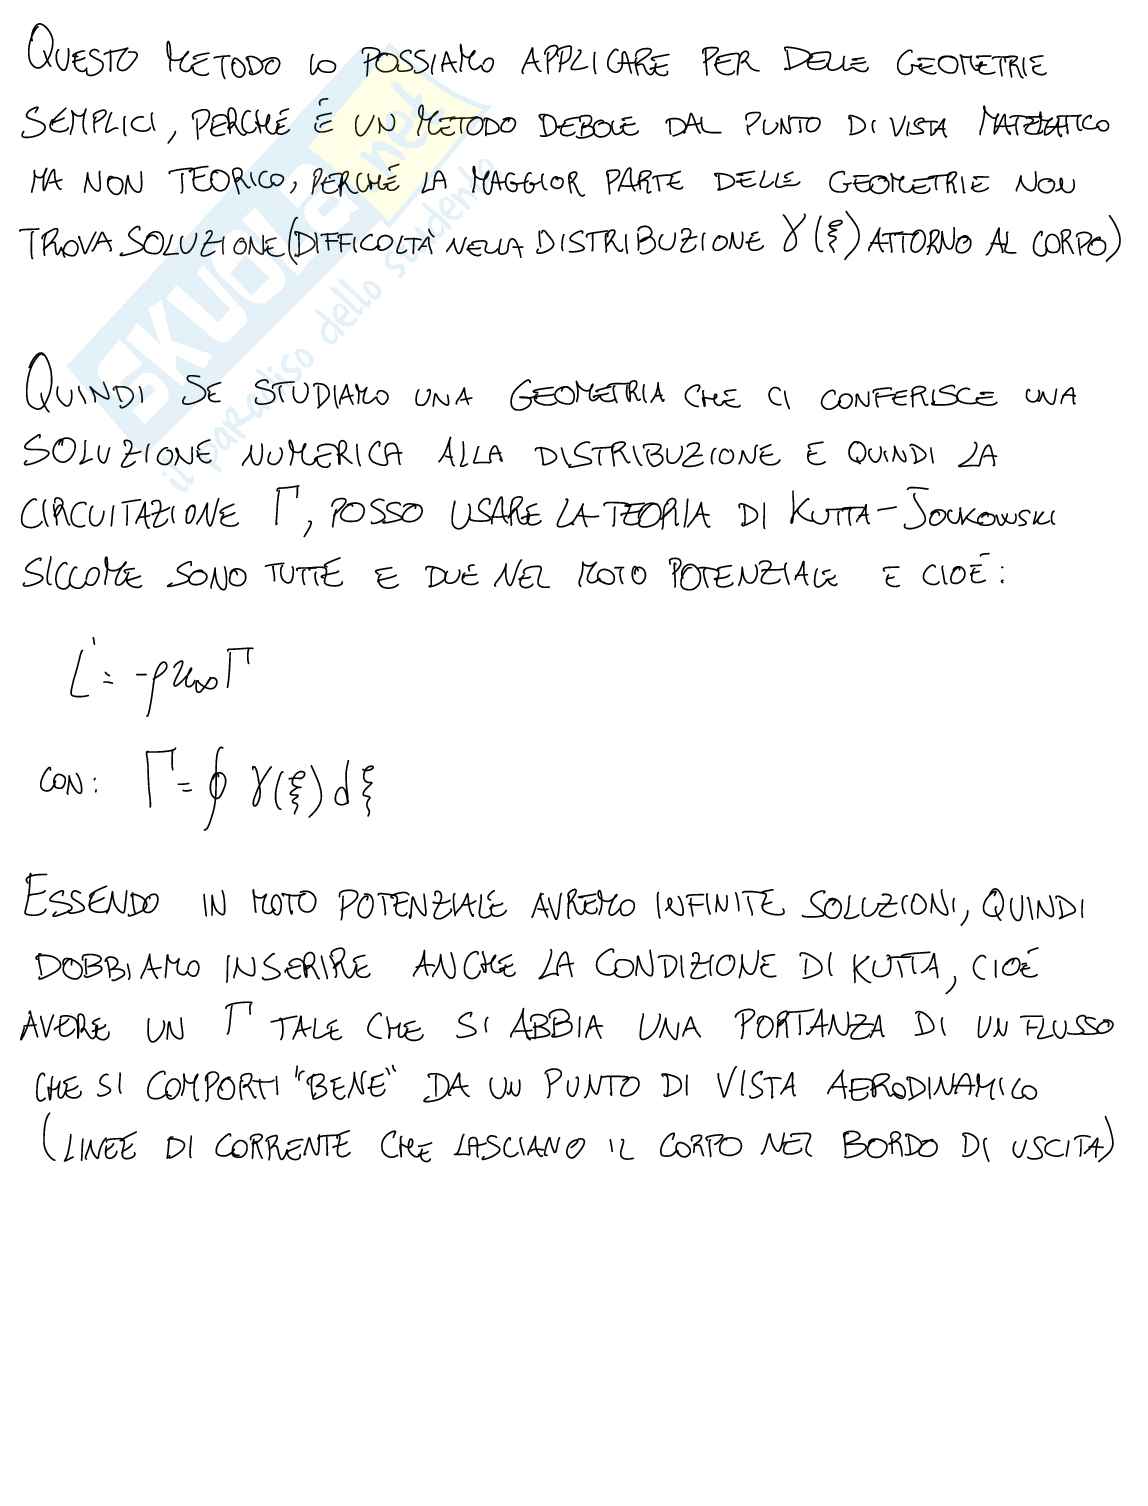 QUESTO METODO LO POSSIAMO APPLICARE PER DELLE GEOMETRIE
SEMPLICI, PERCHÉ È UN METODO DEBOLE DAL PUNTO DI VISTA MATEMATICO
MA NON TEORICO, PERCHÉ LA MAGGIOR PARTE DELLE GEOMETRIE NON
TROVA SOLUZIONE (DIFFICOLTÀ NELLA DISTRIBUZIONE γ(ξ) ATTORNO AL CORPO)
QUINDI SE STUDIAMO UNA GEOMETRIA CHE CI CONFERISCE UNA
SOLUZIONE NUMERICA ALLA DISTRIBUZIONE E QUINDI LA
CIRCUITAZIONE Γ, POSSO USARE LA TEORIA DI KUTTA-JOUKOWSKI
SICCOME SONO TUTTE E DUE NEL MOTO POTENZIALE E CIOÈ:
L' = -ρu∞Γ
CON: Γ = ∮ γ(ξ)dξ
ESSENDO IN MOTO POTENZIALE AVREMO INFINITE SOLUZIONI, QUINDI
DOBBIAMO INSERIRE ANCHE LA CONDIZIONE DI KUTTA, CIOÈ
AVERE UN Γ TALE CHE SI ABBIA UNA PORTANZA DI UN FLUSSO
CHE SI COMPORTI "BENE" DA UN PUNTO DI VISTA AERODINAMICO
(LINEE DI CORRENTE CHE LASCIANO IL CORPO NEL BORDO DI USCITA)
SKUOLA.net
il paradiso dello studente